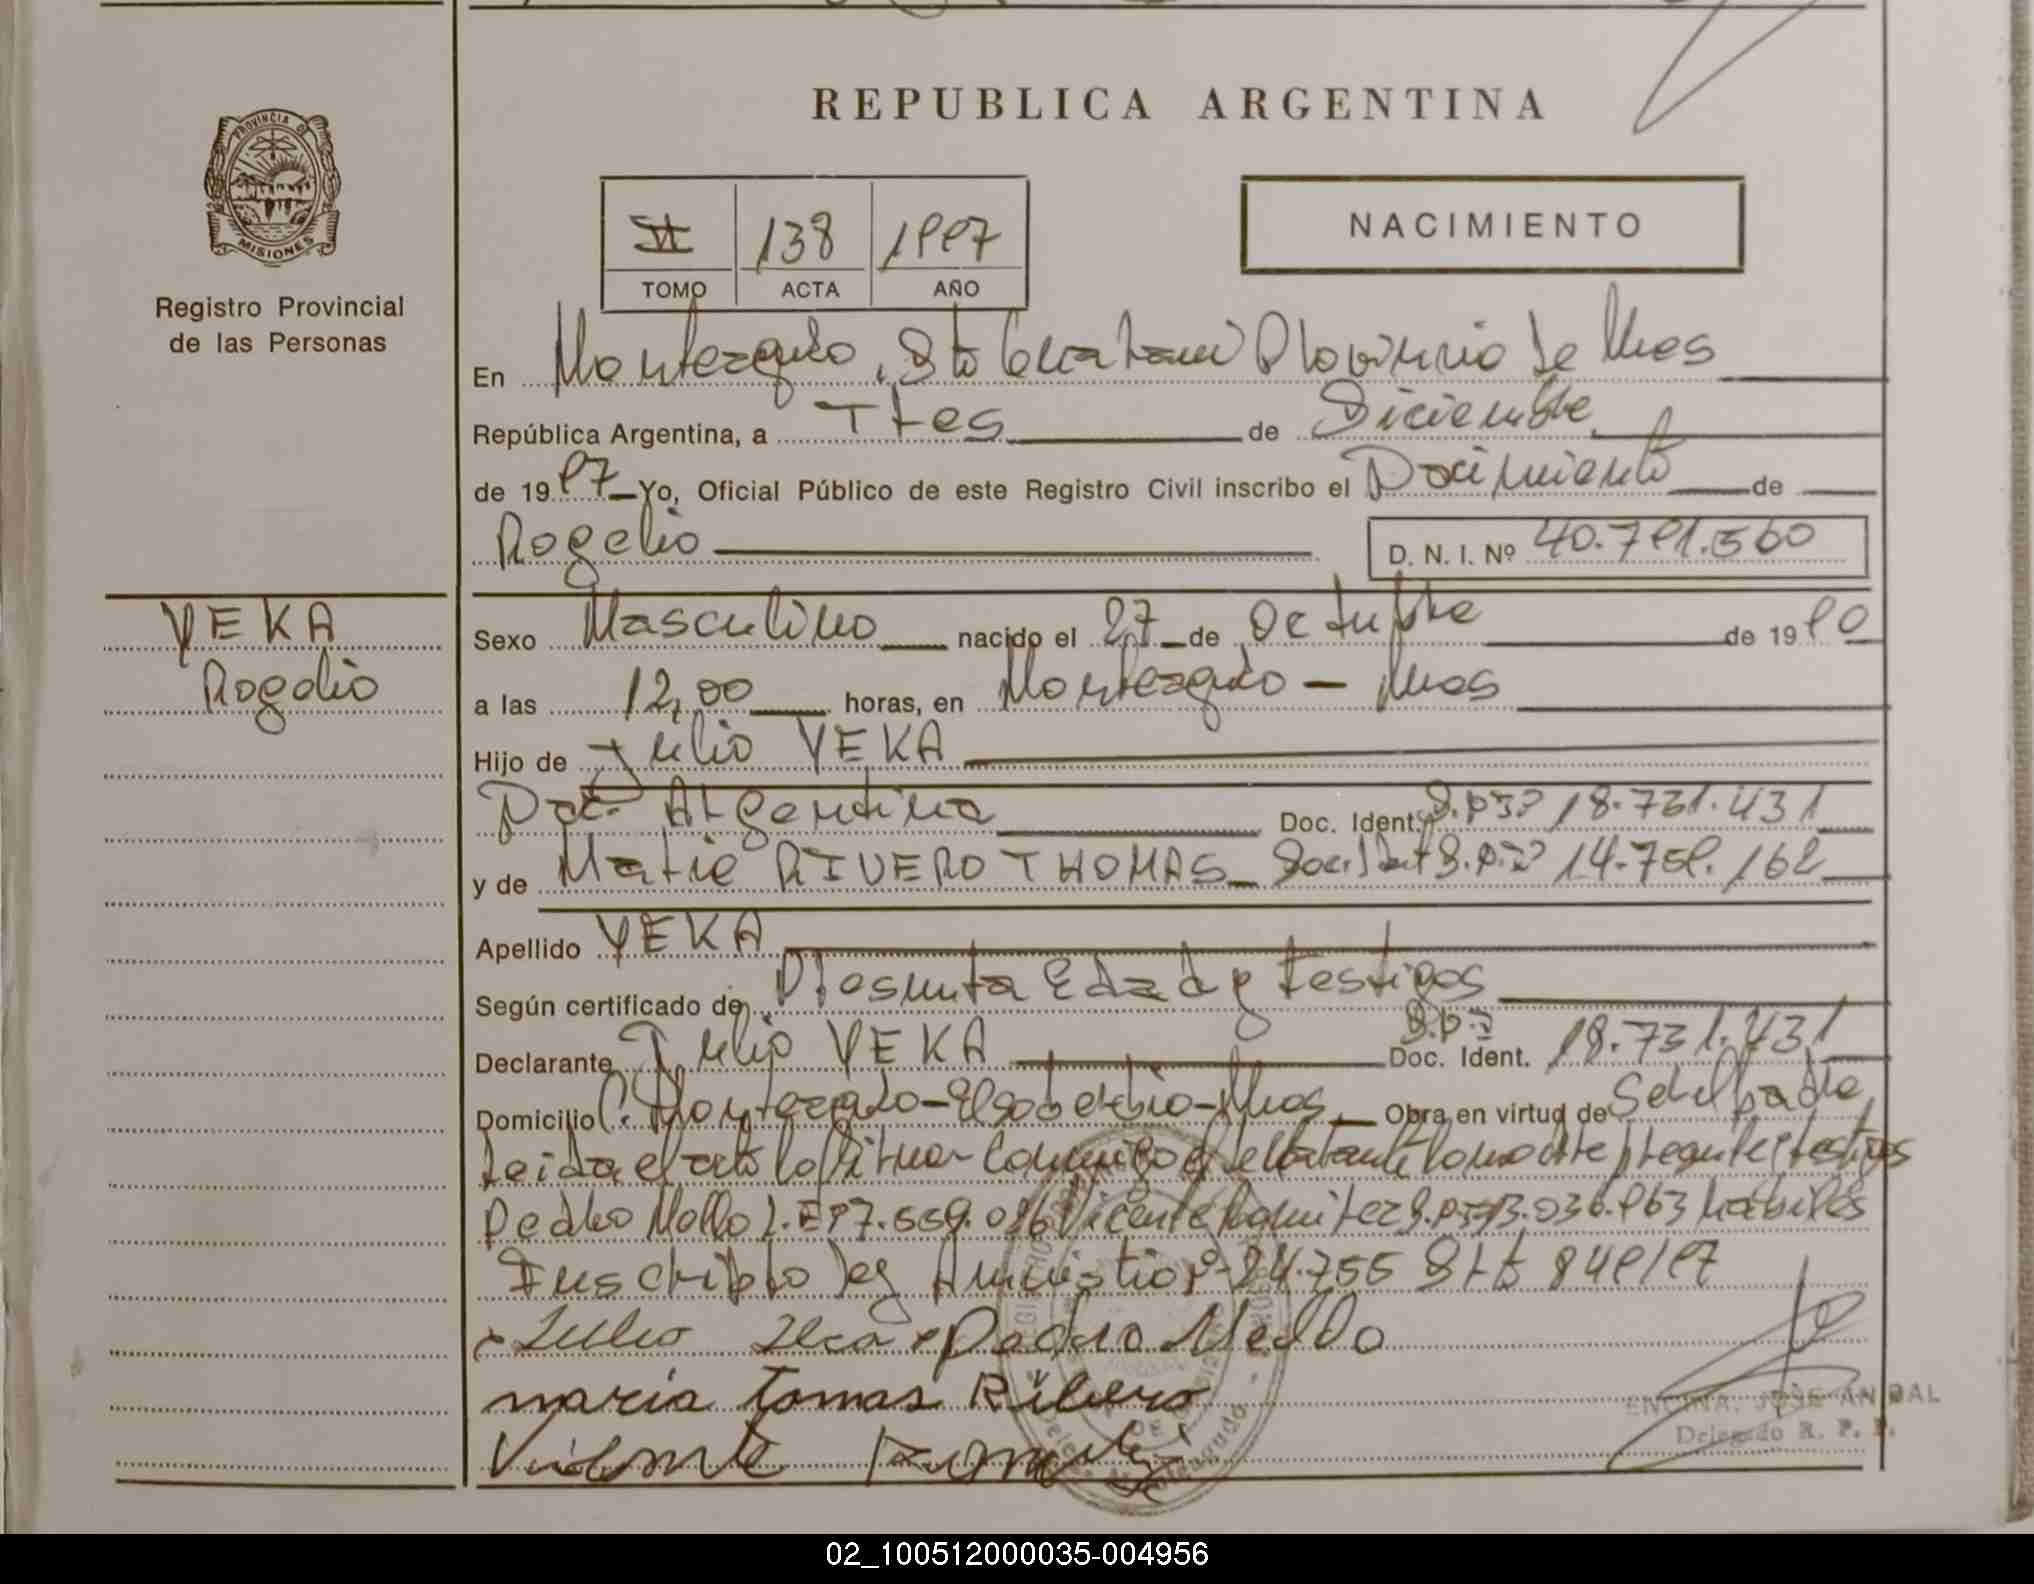 REPUBLICA ARGENTINA
PROVINCIA DE
MISIONES
Registro Provincial
de las Personas
VI 138 1997
TOMO ACTA AÑO
NACIMIENTO
En Monteagudo, Provincia de Mnes
República Argentina, a Tres de Diciembre
de 1997 Yo, Oficial Público de este Registro Civil inscribo el Nacimiento de
Rogelio D. N. I. Nº 40.791.560
YEKA
Rogelio
Sexo Masculino nacido el 27 de Octubre de 1990
a las 12,00 horas, en Monteagudo - Mnes
Hijo de Julio YEKA
Nac. Argentina Doc. Ident. 18.731.431
y de Maria RIVERO THOMAS Doc. Ident 14.759.162
Apellido YEKA
Según certificado de Presunta Edad y testigos
Declarante Julio YEKA Doc. Ident. 18.731.431
Domicilio C. Monteagudo - El soberbio - Mnes Obra en virtud de Ser el padre
Leida el acta la firman Conmigo el declarante testigos
Pedro Mello L.E Vicente habiles
Inscripto ley Amnistia 24.755 849/97
Pedro Mello
maria tomas Ribero
Vicente
ENCINA, JOSE ANIBAL
Delegado R. P. P.
02_100512000035-004956